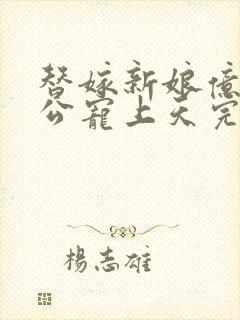 替嫁新娘億
公寵上天完
楊志雄